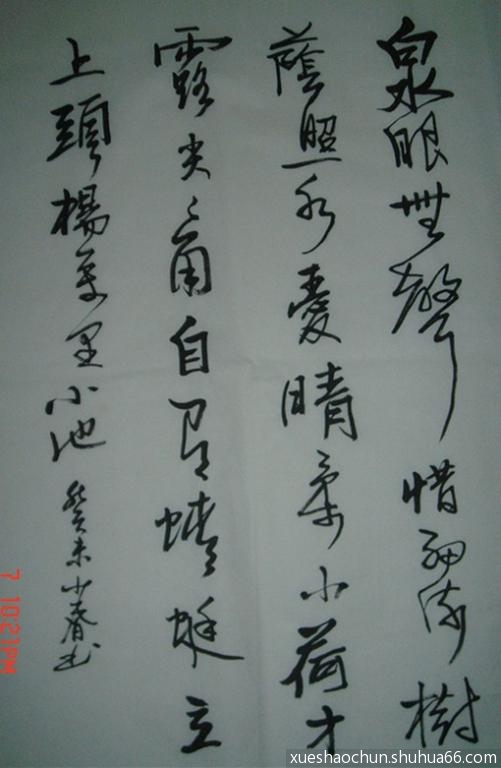 泉眼無聲惜細流樹
蔭照水愛晴柔小荷才
露尖々角自有蜻蜓立
上頭楊萬里小池 癸未少春书
7 10:21PM
xueshaochun.shuhua66.com